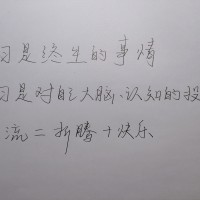 习是终生的事情
习是对自己大脑、认知的投
流二折腾+快乐